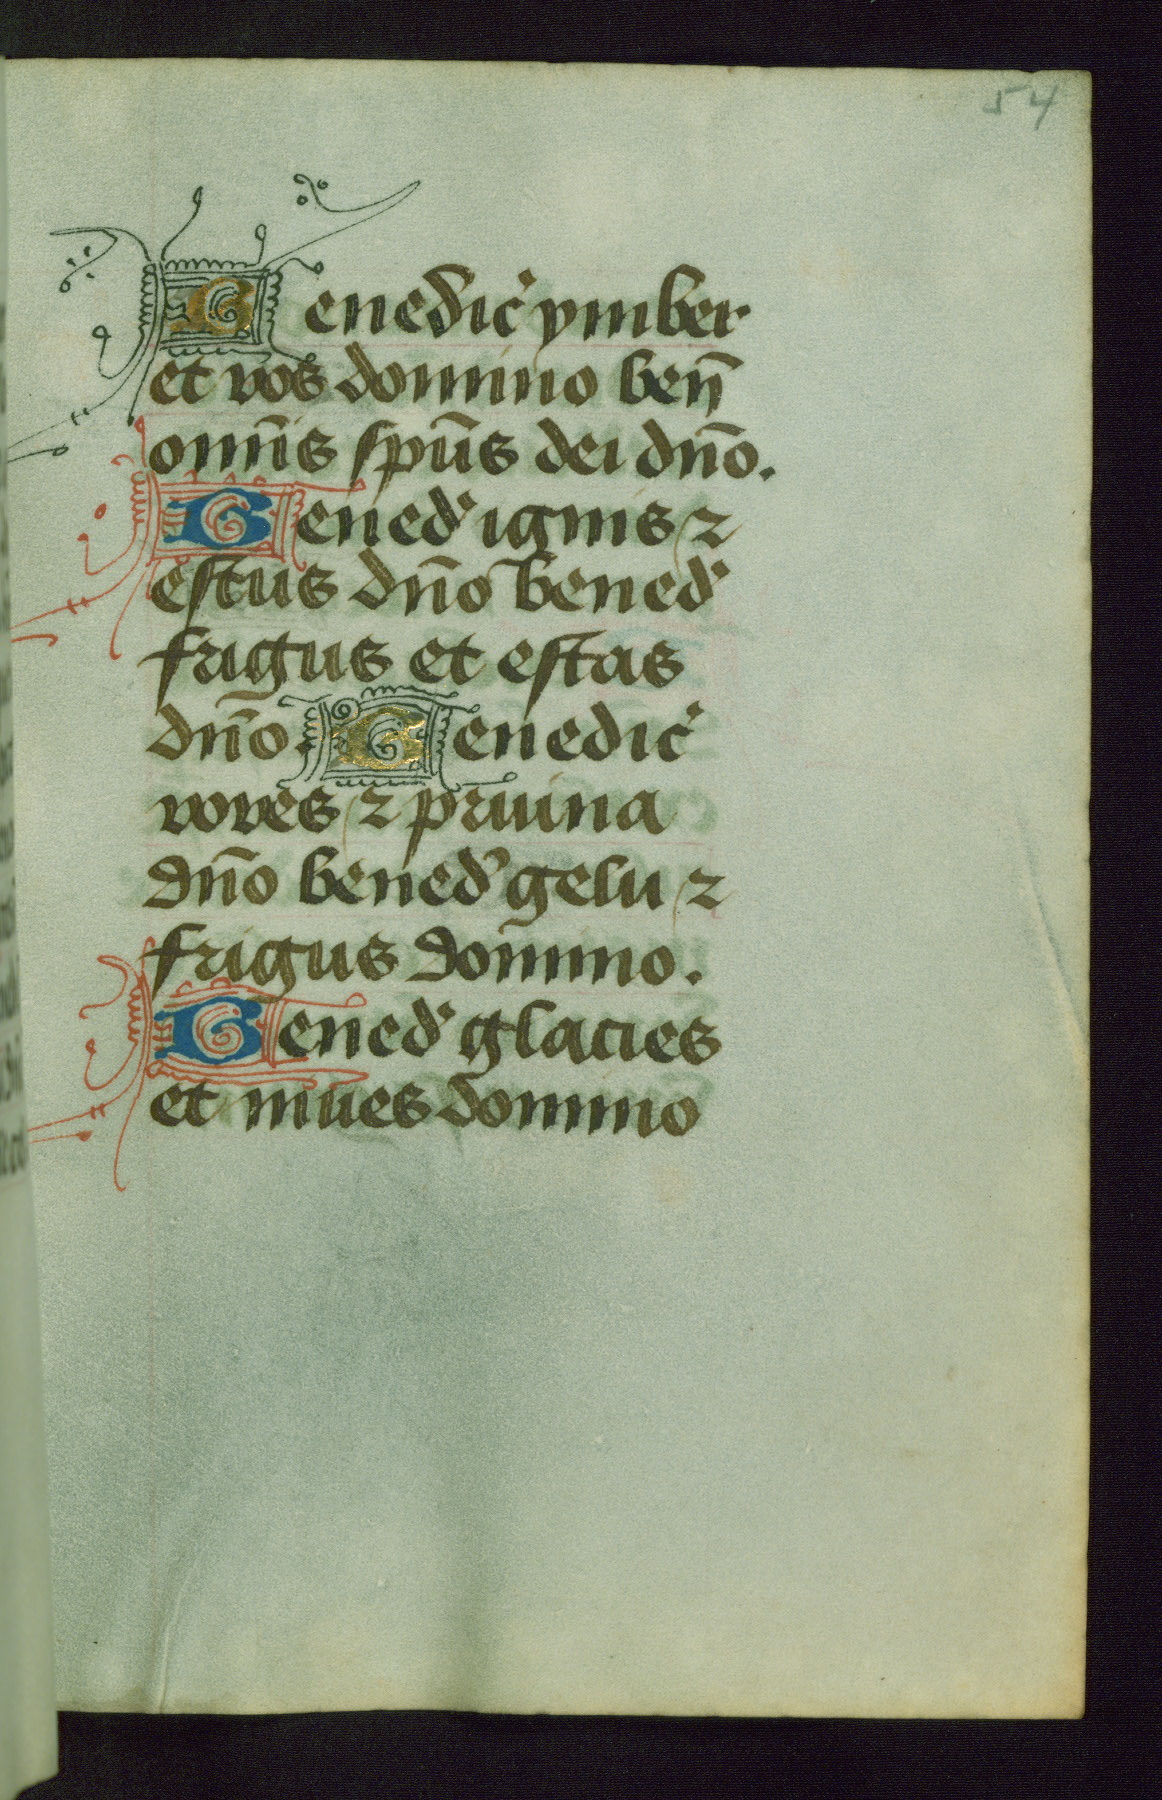 54
Benedic̉ ymber
et ros domino ben̄
omīs spūs dei dn̄o.
Bened̉ ignis ⁊
estus dn̄o bened̉
frigus et estas
dn̄o. Benedic̉
rores ⁊ pruina
dn̄o bened̉ gelu ⁊
frigus domino.
Bened̉ glacies
et niues domino